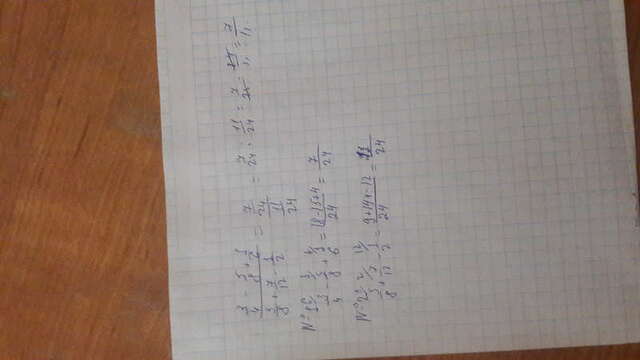 (3/4 - 5/8 + 1/6) / (3/8 + 7/12 - 1/2) = (7/24) / (11/24) = 7/24 : 11/24 = 7/24 · 24/11 = 7/11
N=1) 3/4 - 5/8 + 1/6 = (18-15+4)/24 = 7/24
N=2) 3/8 + 7/12 - 1/2 = (9+14-12)/24 = 11/24